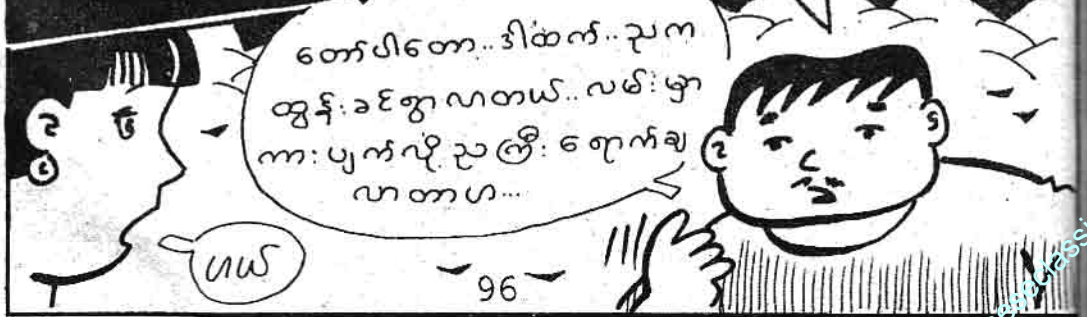 တော်ပါတော..ဒါထက်..ညက
ထွန်းခင်ရွာလာတယ်..လမ်းမှာ
ကားပျက်လို့ညကြီးရောက်ချ
လာတာဟ...
ဟယ်
96